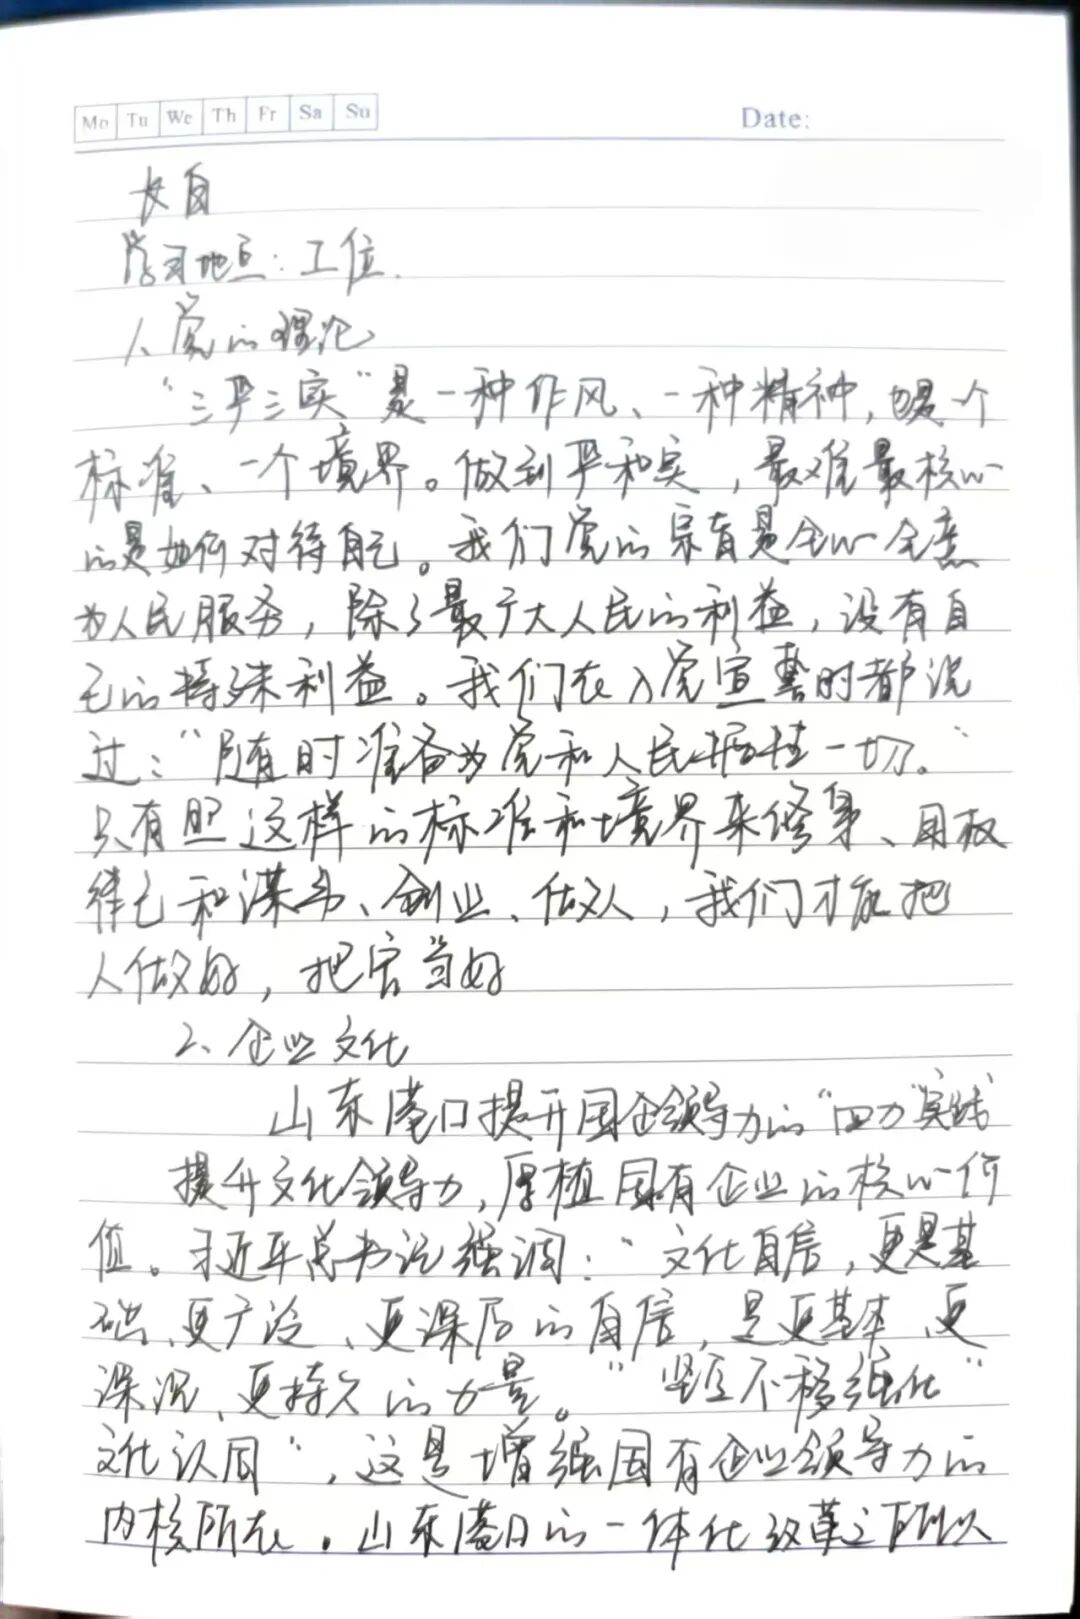 Mo Tu We Th Fr Sa Su Date:
学习地点：工位.
1、党的理论
“三严三实”是一种作风、一种精神，也是个
标准、一个境界。做到严和实，最难最核心
的是如何对待自己。我们党的宗旨是全心全意
为人民服务，除了最广大人民的利益，没有自
己的特殊利益。我们在入党宣誓时都说
过：“随时准备为党和人民牺牲一切。”
只有照这样的标准和境界来修身、用权
律己和谋事、创业、做人，我们才能把
人做好，把官当好
2、企业文化
山东港口提升国企领导力的“四力”实践
提升文化领导力，厚植国有企业的核心价
值。习近平总书记强调：“文化自信，更是基
础、更广泛、更深厚的自信，是更基本、更
深沉、更持久的力量。”坚定不移强化“
文化认同”，这是增强国有企业领导力的
内核所在。山东港口的一体化改革之所以